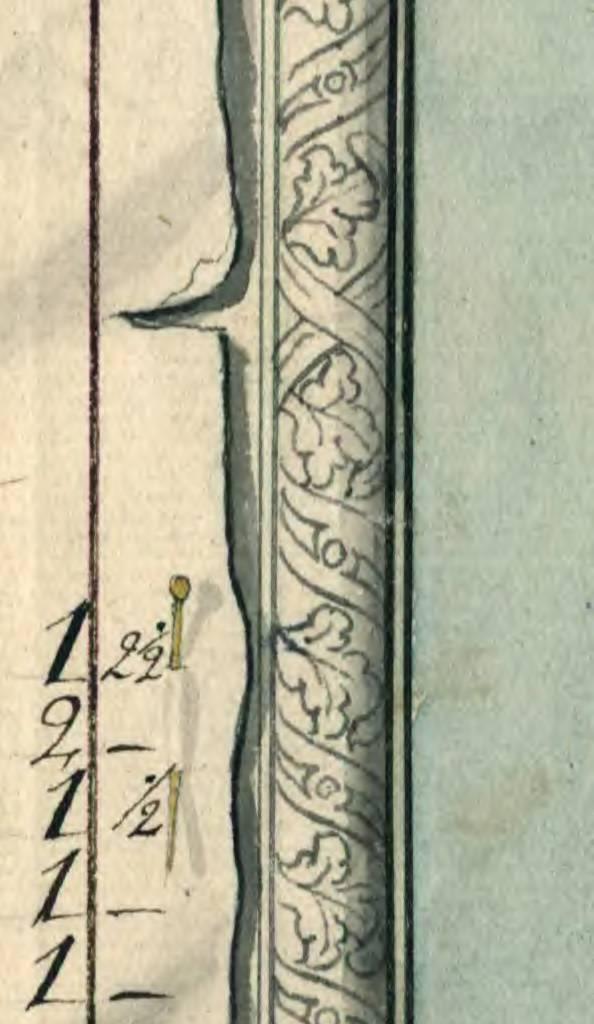 1 2½
2 –
1 ½
1 –
1 –